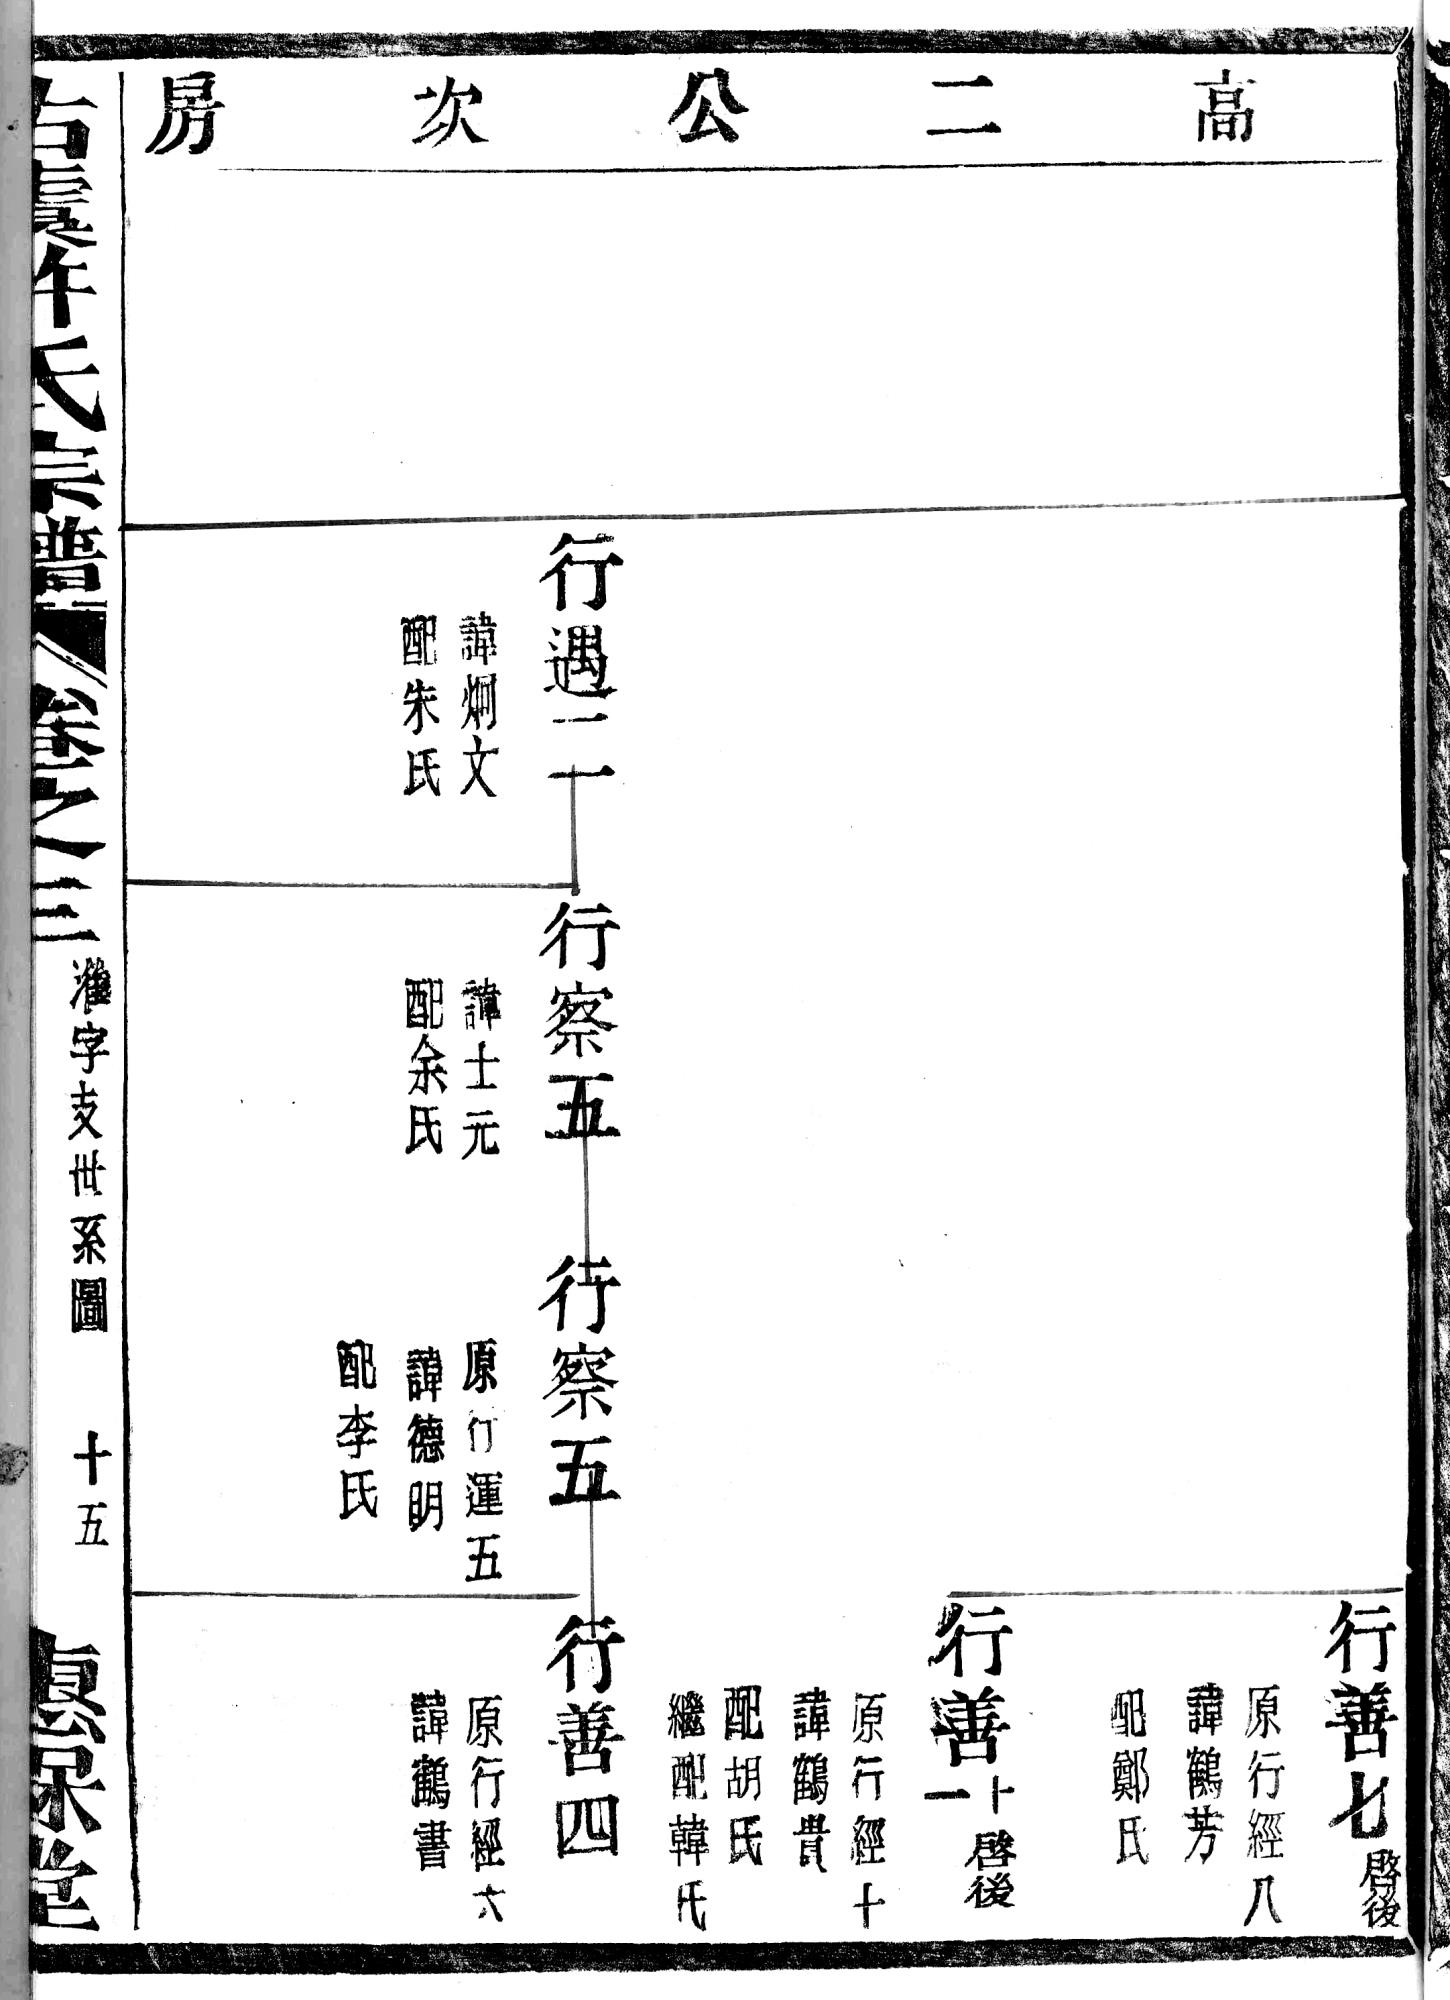 高二公次房
行善七 啓後
原行經八
諱鶴芳
配鄭氏
行善十一 啓後
原行經十
諱鶴貴
配胡氏
繼配韓氏
行遇二一
諱炯文
配朱氏
行察五
諱士元
配余氏
行察五
原行運五
諱德明
配李氏
行善四
原行經六
諱鶴書
古虞許氏宗譜 卷之三
濰字支世系圖 十五
堂